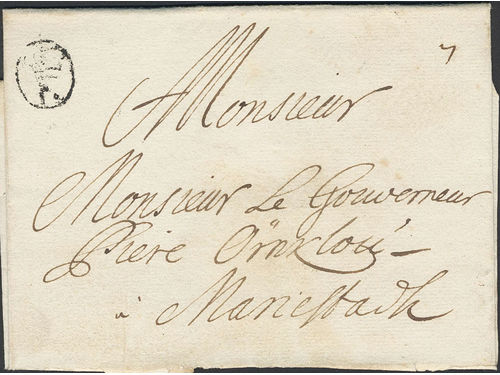 Monsieur
Monsieur Le Gouverneur
Piere Örnkloü
à Mariestadh